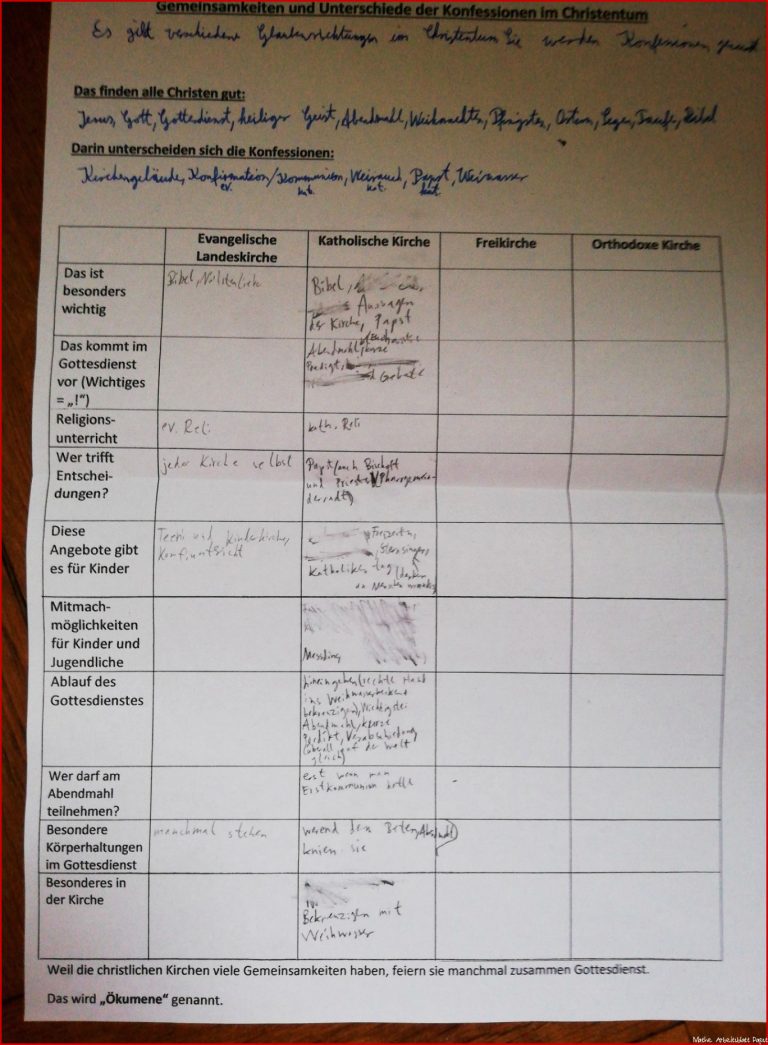 Gemeinsamkeiten und Unterschiede der Konfessionen im Christentum
Es gibt verschiedene Glaubensrichtungen im Christentum Sie werden Konfessionen
Das finden alle Christen gut:
Jesus, Gott, Gottesdienst, heiliger Geist, Abendmahl, Weihnachten, Pfingsten, Ostern, Segen, Taufe, Bibel
Darin unterscheiden sich die Konfessionen:
Kirchengebäude, Konfirmation/Kommunion, Weirauch, Papst, Weiwasser
ev. kat. kat. kat.
Evangelische
Landeskirche
Katholische Kirche
Freikirche
Orthodoxe Kirche
Das ist
besonders
wichtig
Bibel,
Bibel,
Aussagen
der Kirche, Papst
Das kommt im
Gottesdienst
vor (Wichtiges
= „!“)
Abendmahl,
Predigt,
Gebete
Religions-
unterricht
ev. Reli
kath. Reli
Wer trifft
Entschei-
dungen?
jeder Kirche selbst
Papst/auch Bischoff
und Priester
Diese
Angebote gibt
es für Kinder
Teeni und Kinderkirche,
Konfiuntericht
Freizeiten,
Sternsinger,
Mitmach-
möglichkeiten
für Kinder und
Jugendliche
Ablauf des
Gottesdienstes
hineingehen(rechte Hand
ins Weihwasserbecken
bekreuzigen), Wichtigstei
Abendmahl, kurze
Verabschiedung
(überall auf der Welt
gleich)
Wer darf am
Abendmahl
teilnehmen?
erst wenn man
Erstkommunion hatte
Besondere
Körperhaltungen
im Gottesdienst
manchmal stehen
knien sie
Besonderes in
der Kirche
Bekreuzigen mit
Weihwasser
Weil die christlichen Kirchen viele Gemeinsamkeiten haben, feiern sie manchmal zusammen Gottesdienst.
Das wird „Ökumene“ genannt.
Mathe Arbeitsblatt Papst